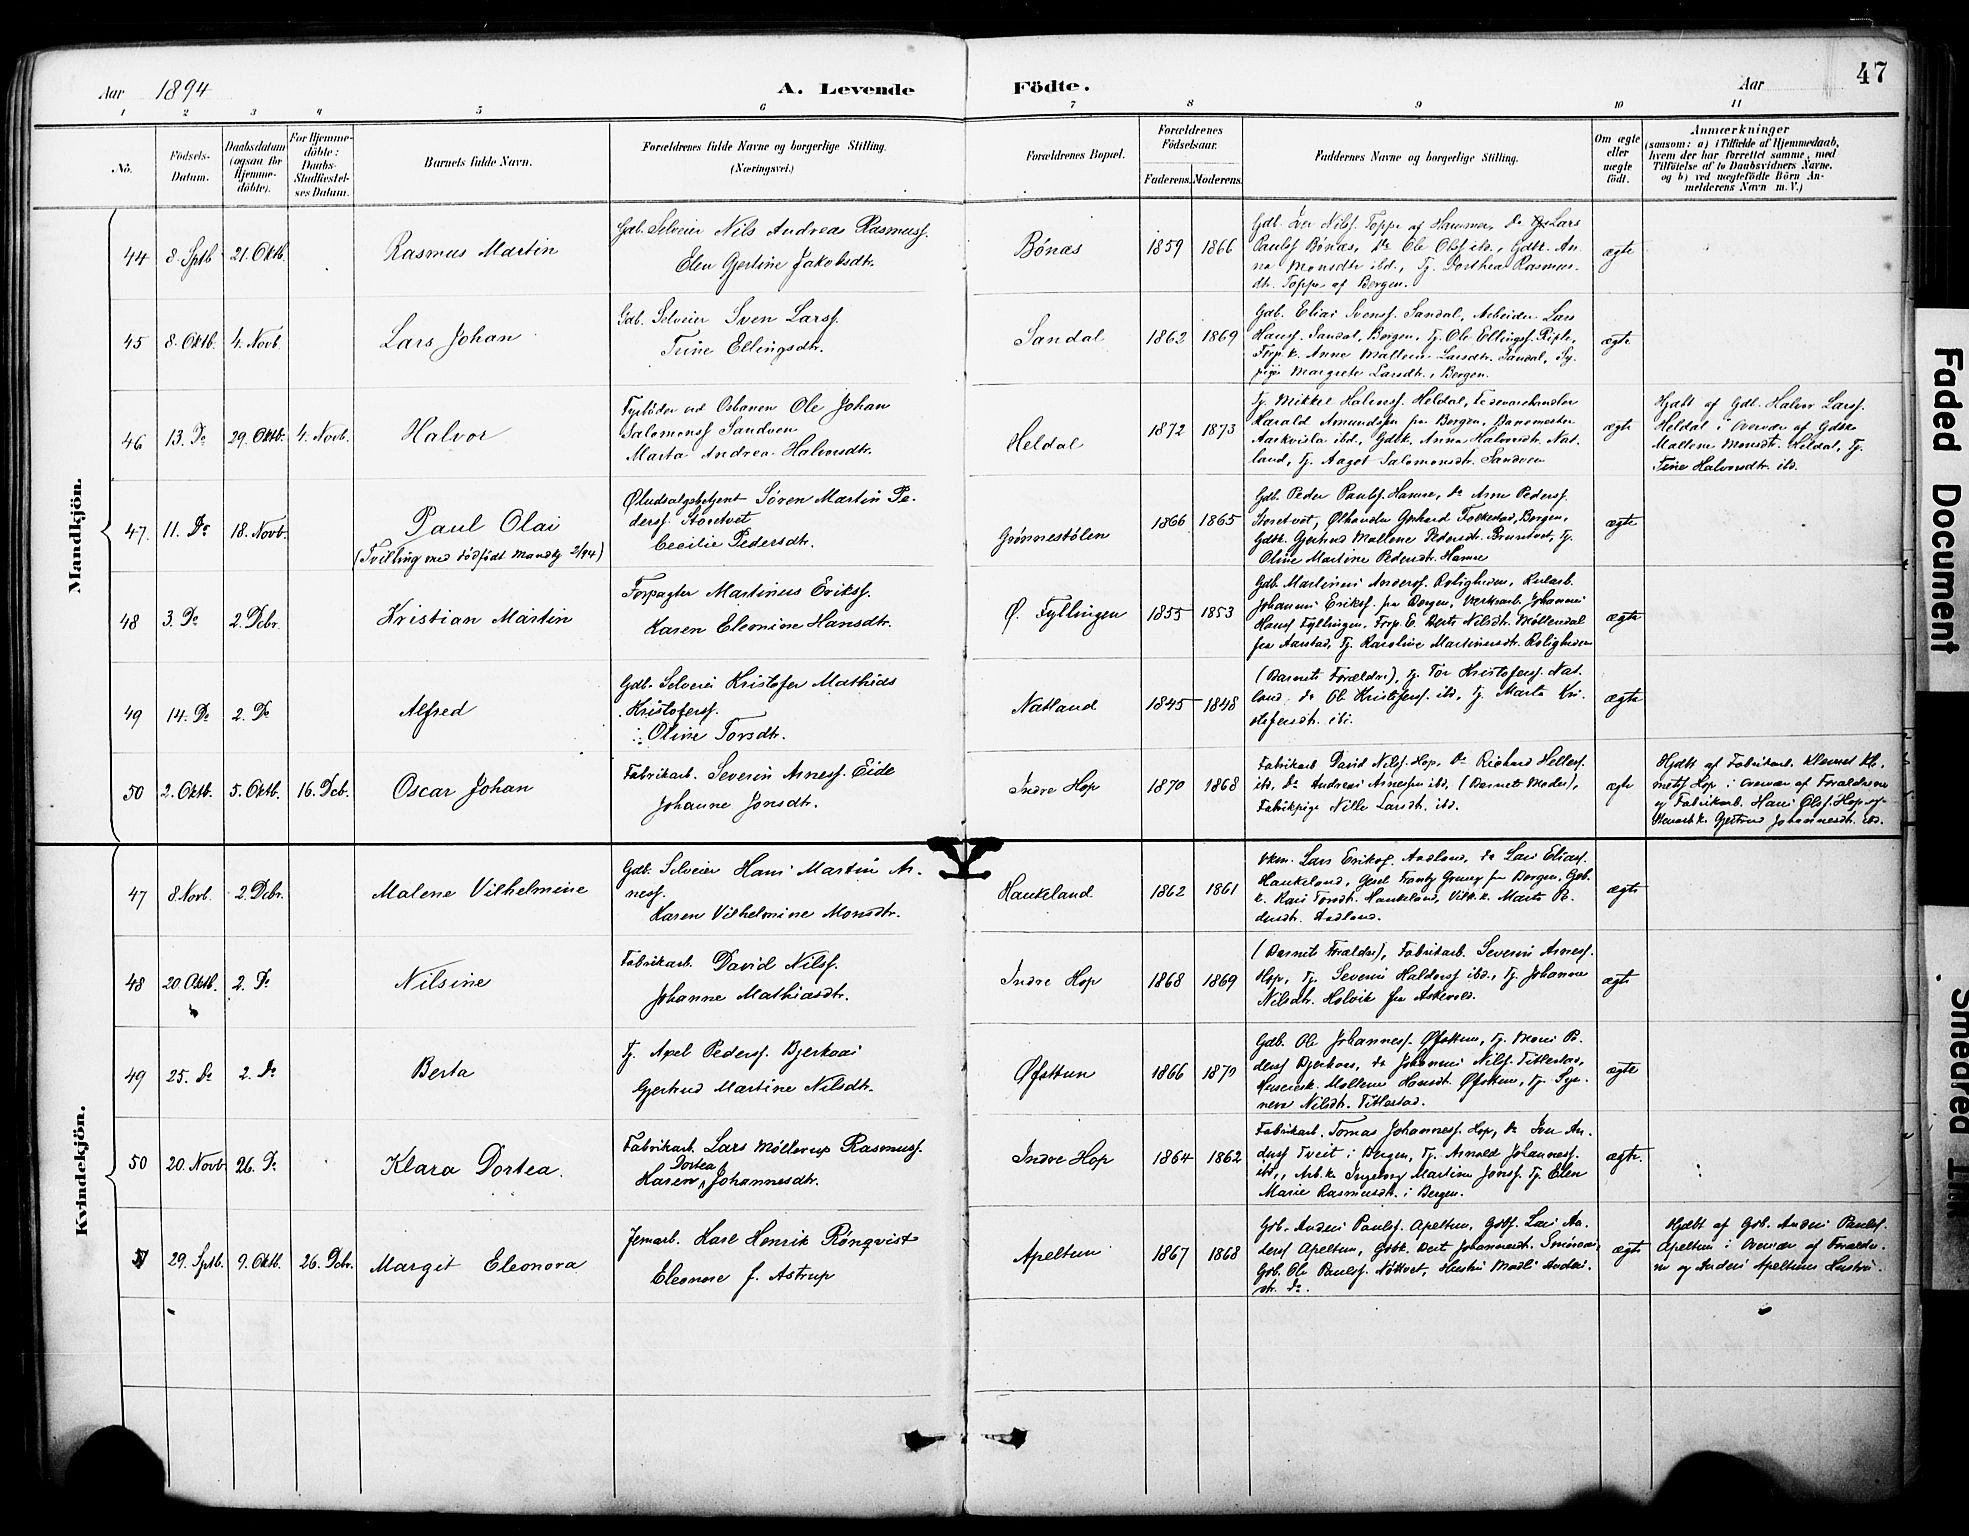 47
Aar 1894
A. Levende
Födte.
Aar
1 2 3 4 5 6 7 8 9 10 11
No.
Födsels-Datum.
Daabsdatum (ogsaa for Hjemme-döbte).
For Hjemme-döbte: Daabs-Stadfæstel-ses Datum.
Barnets fulde Navn.
Forældrenes fulde Navne og borgerlige Stilling.
(Næringsvei.)
Forældrenes Bopæl.
Forældrenes Födselsaar.
Faderens. Moderens.
Faddernes Navne og borgerlige Stilling.
Om ægte eller uægte födt.
Anmærkninger
(saasom: a) i Tilfælde af Hjemmedaab,
hvem der har forrettet samme, med
Tilföielse af to Daabsvidners Navne.
og b) ved uægtefödte Börn An-
melderens Navn m. V.)
Mandkjön.
44 8. Sptb 21. Oktb. Rasmus Martin
Gdb. Selveier Nils Andreas Rasmuss.
Elen Gjertine Jakobsdtr.
Bönæs 1859 1866
Paulss Bönæs, Do Ole Olss ibd., Gdbk. An-
na Monsdtr ibd., Tj. Dorthea Rasmus-
dtr. Toppe af Bergen.
ægte
45 8. Oktb. 4. Novb Lars Johan
Gdb. Selveier Sven Larss.
Trine Ellingsdtr.
Sandal 1862 1869
Gdb. Elias Svenss. Sandal, Arbeider Lars
Hanss. Sandal, Bergen, Tj. Ole Ellingss. Riple,
Anne Mallene Larsdtr. Sandal, Sy-
pige Margrete Larsdtr., Bergen.
ægte
46 13. Do 29. Oktb. 4. Novb. Halvor
Fyrböder ved Osbanen Ole Johan
Salomonss Sandven
Marta Andrea Halvorsdtr.
Heldal 1872 1873
Tj. Mikkel Halvorss. Heldal,
Harald Amundsen fra Bergen, Banemester
Aarkvisla ibd., Gdbk. Anna Halvorsdtr. Nat-
land, Tj. Aagot Salomonsdtr. Sandven
ægte
Hjdbt af Gdb. Halvor Larss.
Heldal i Overvær af Gdbk.
Mallene Monsdtr. Heldal, Tj.
Trine Halvorsdtr. ibd.
47. 11. Do 18. Novb. Paul Olai
(Tvilling med dödfödt Mandkj 2/94)
Öludsalgsbetjent Sören Martin Pe-
derss. Storetvet
Cecilie Pedersdtr.
Grönnestölen 1866 1865
Gdb. Peder Paulss. Hamre, Do Arne Pederss.
Storetvet, Ölhandler Gerhard Folkestad, Bergen,
Gdbk. Gjertrud Mallene Pedersdtr. Storetvet, Tj.
Oline Martine Pedersdtr. Hamre
ægte
48 3. Do 2. Debr. Kristian Martin
Forpagter Martinus Erikss.
Karen Eleonine Hansdtr.
Ö. Fyllingen 1855 1853
Gdb. Martinus Anderss. Rolighden,
Johannes Erikss. fra Bergen, Værksarb. Johannes
Hanss Fyllingen, Forp. E. Berte Nilsdtr. Möllendal
fra Aarstad, Tj. Karoline Martinusdtr. Rolighden
ægte
49 14. Do 2. Do Alfred
Gdb. Selveier Kristofer Mathias
Kristoferss.
Oline Torsdtr.
Natland 1845 1848
(Barnets Forældre), Tj. Tor Kristoferss. Nat-
land, Do Ole Kristoferss. ibd., Tj. Marta Kri-
stofersdtr. ibd.
ægte
50 2. Oktb. 5. Oktb. 16. Deb. Oscar Johan
Fabrikarb. Severin Arness. Eide
Johanne Jonsdtr.
Indre Hop 1870 1868
Fabrikarb David Nilss. Hop, Do Richard Hellers.
ibd., Do Andreas Arnesen ibd., (Barnets Moder),
Fabrikpige Nille Larsdtr. ibd.
ægte
Hjdbt af Fabrikarb. Klemet Kle-
metss Hop i Overvær af Forældrene
og Fabrikarb. Hans Olss. Hop og
Gjertrud Johannesdtr. ibd.
Kvindekjön.
47 8. Novb. 2. Debr. Malene Vilhelmine
Gdb. Selveier Hans Martin Ar-
ness.
Karen Vilhelmine Monsdtr.
Haukeland 1862 1861
Lars Erikss. Aadland, Do Lars Eliass.
Haukeland, fra Bergen, Gdb.
k. Kari Torsdtr. Haukeland, Marta Pe-
dersdtr. Aadland.
ægte
48 20. Oktb. 2. Do Nilsine
Fabrikarb. David Nilss.
Johanne Mathiasdtr.
Indre Hop 1868 1869
(Barnets Forældre), Fabrikarb. Severin Arness.
Hop, Tj. Severin Halderss ibd., Tj. Johanne
Nilsdtr. Holvik fra Askevold.
ægte
49 25. Do 2. Do Berta
Tj. Axel Pederss. Bjerkaas
Gjertrud Martine Nilsdtr.
Öfsttun 1866 1870
Gdb. Ole Johanness. Öfsttun, Tj. Mons Pe-
derss Bjerkaas, Do Johannes Nilss. Titlestad,
Mallene Hansdtr. Öfsttun, Tj. Syn-
neva Nilsdtr. Titlestad.
ægte
50 20. Novb 26. Do Klara Dortea.
Fabrikarb. Lars Möllerup Rasmuss.
Karen Dortea Johannesdtr.
Indre Hop 1864 1862
Fabrikarb. Tomas Johanness. Hop, Do Iver An-
derss Tveit i Bergen, Tj. Arnold Johanness.
ibd., Arb.k. Ingeborg Martine Jonss. Tj. Elen
Marie Rasmusdtr. i Bergen.
ægte.
51 29. Sptb. 9. Oktb. 26. Debr. Margit Eleonora
Jernarb. Karl Henrik Rönqvist
Eleonore f. Astrup
Apeltun 1867 1868
Gdb. Anders Paulss. Apeltun, Gdbs. Lars An-
derss Apeltun, Gdbk. Berit Johannesdtr. Smöraas,
Gdb. Ole Paulss. Nöttvet, Hustru Madli Anders-
dtr. Do.
ægte
Hjdbt af Gdb. Anders Paulss.
Apeltun i Overvær af Forældre-
ne og Anders Apeltuns Hustru.
Faded Document
Smeared Ink